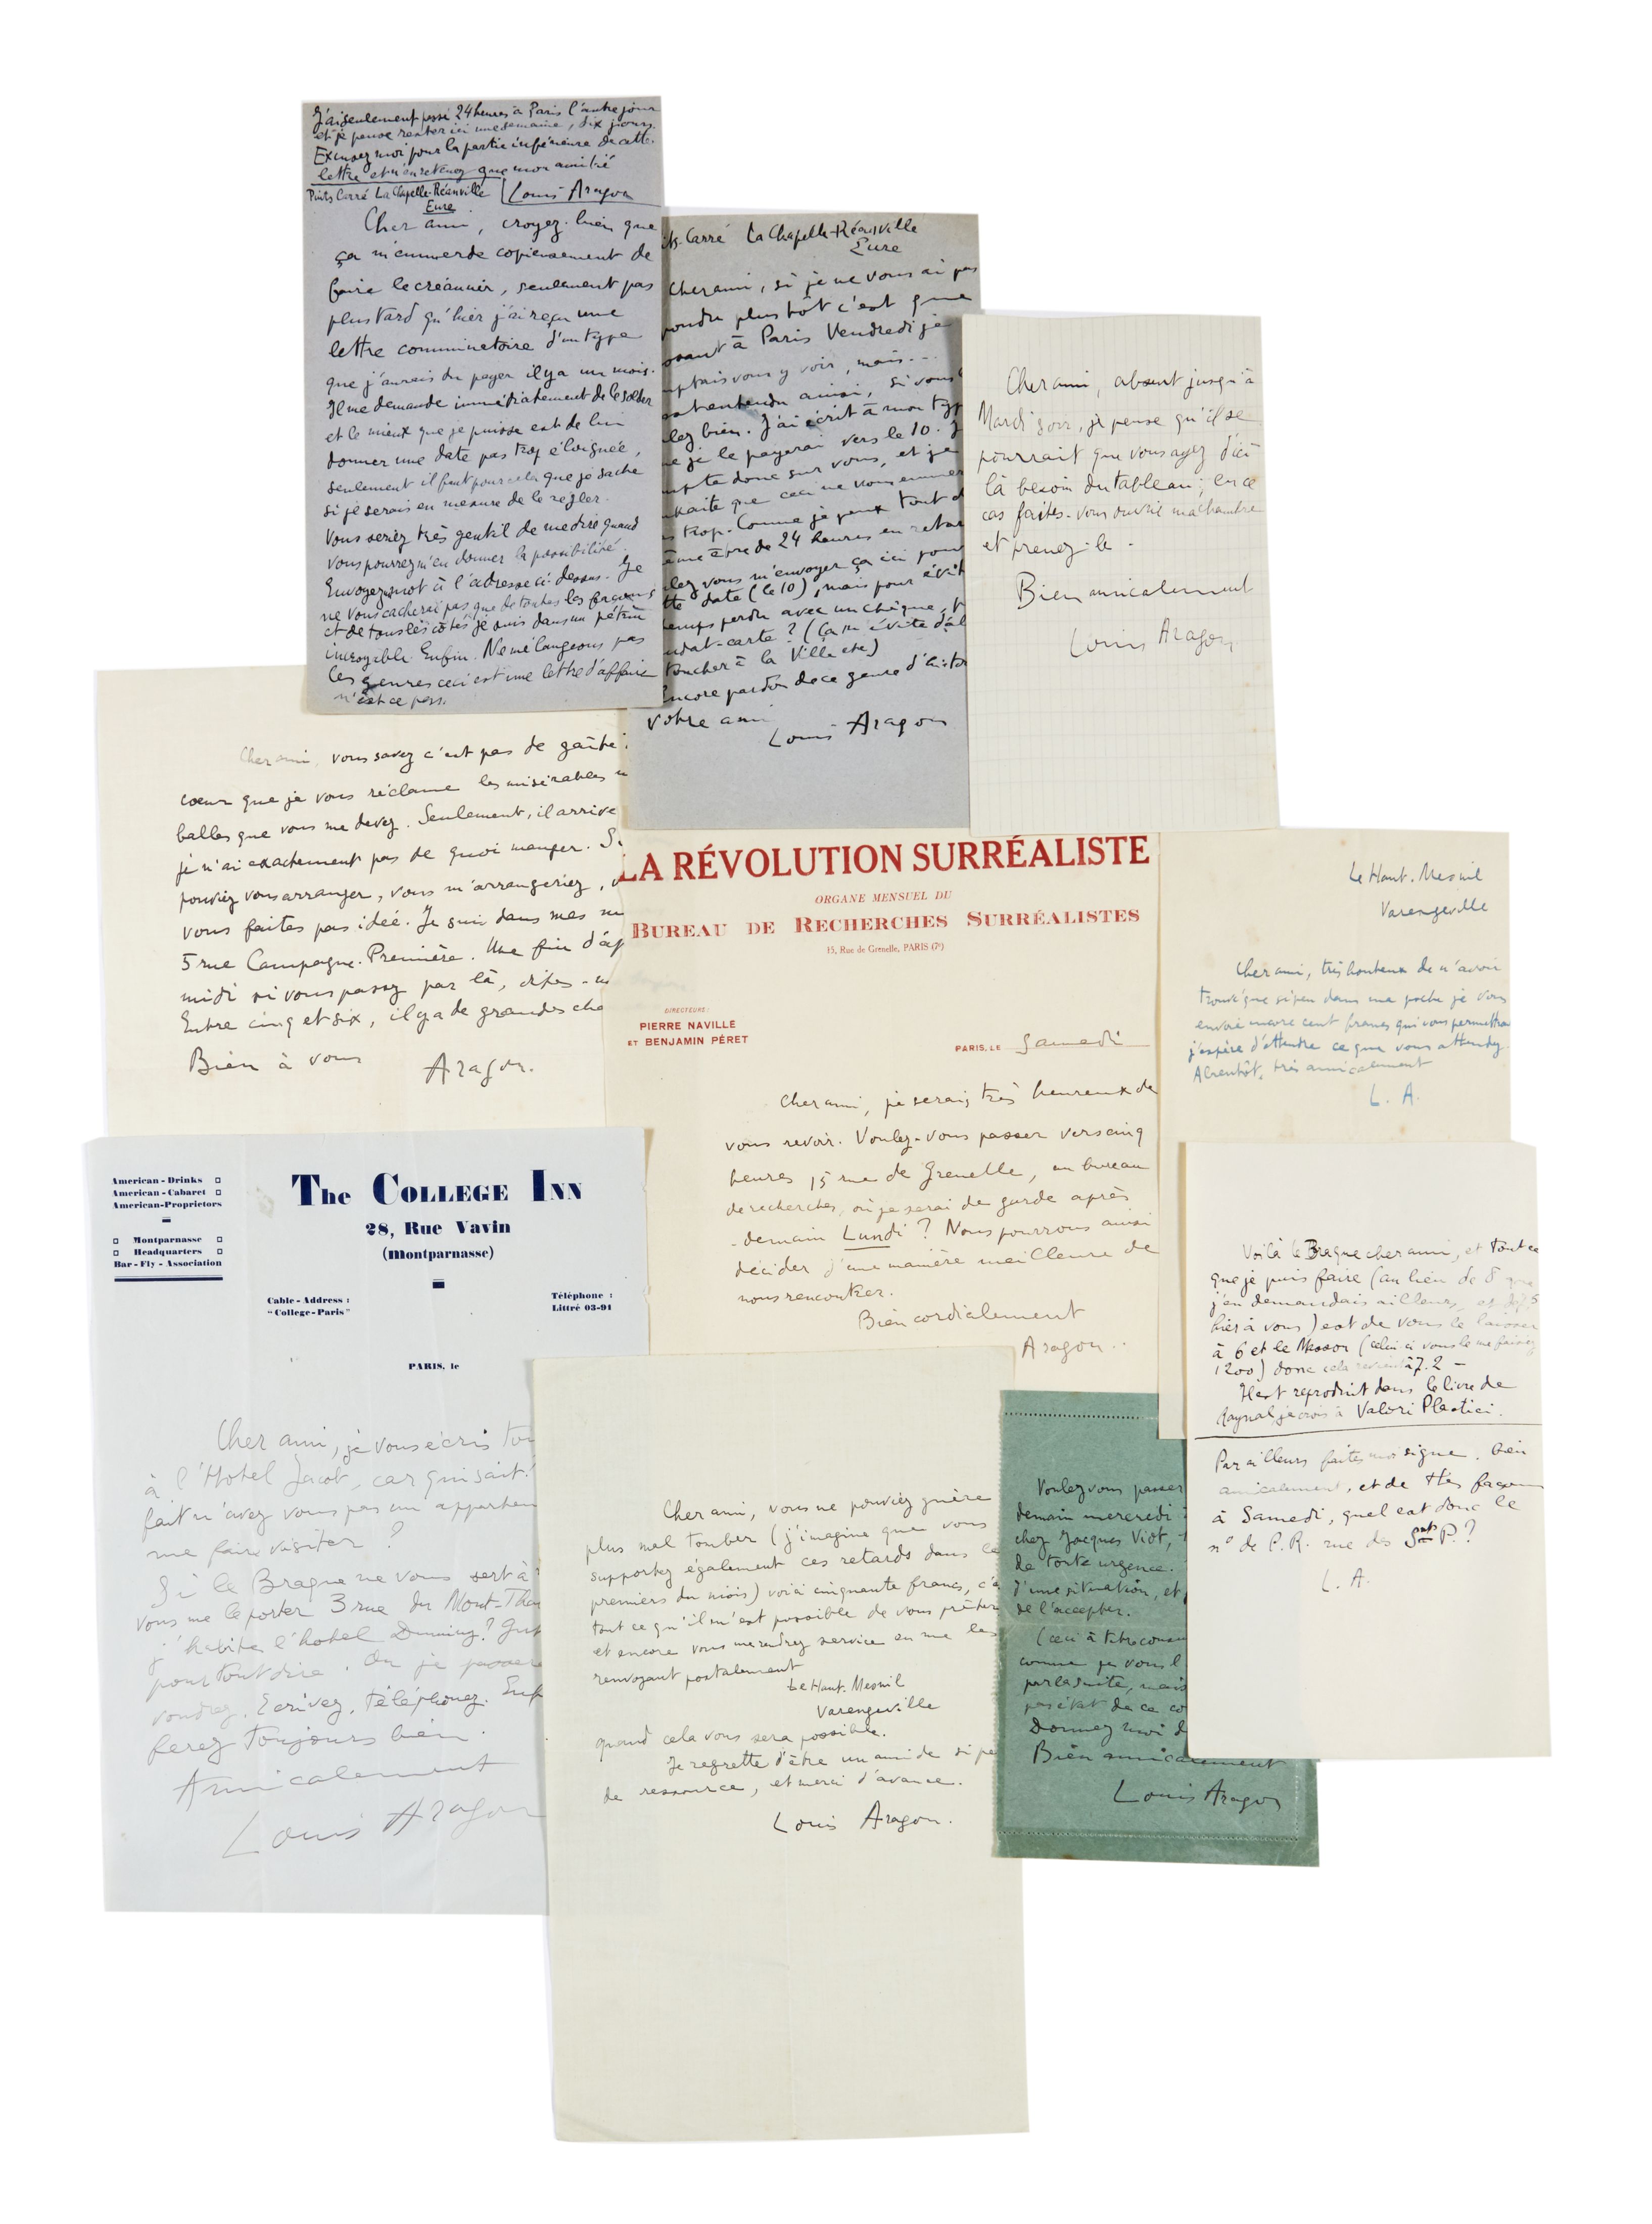 J'ai seulement passé 24 heures à Paris l'autre jour
et je pense rester ici une semaine, dix jours.
Excusez moi pour la partie inférieure de cette
lettre et n'en retenez que mon amitié
Louis Aragon
Puits Carré La Chapelle-Réanville
Eure
Cher ami, croyez bien que
ça m'emmerde copieusement de
faire le créancier, seulement pas
plus tard qu'hier j'ai reçu une
lettre comminatoire d'un type
que j'aurais du payer il y a un mois.
Il me demande immédiatement de le solder
et le mieux que je puisse est de lui
donner une date pas trop éloignée,
seulement il faut pour cela que je sache
si je serais en mesure de le régler.
Vous seriez très gentil de me dire quand
vous pourrez m'en donner la possibilité.
Envoyez mot à l'adresse ci-dessus. Je
ne vous cacherai pas que de toutes les façons
et de tous les côtés je suis dans un pétrin
incroyable. Enfin. Ne mélangeons pas
les genres ceci est une lettre d'affaire
n'est ce pas.
ts-Carré La Chapelle-Réanville
Eure
Cher ami, si je ne vous ai pas
pondu plus tôt c'est que
ssant à Paris Vendredi je
mptais vous y voir, mais...
est entendu ainsi, si vous
lez bien. J'ai écrit à mon typ
e je le payerai vers le 10. J
mpte donc sur vous, et je
uhaite que ceci ne vous emmer
s trop. Comme je peux tout d
ême être de 24 heures en retar
lez vous m'envoyer ça ici pour
tte date (le 10), mais pour évit
temps perdu avec un chèque, p
ndat-carte ? (Ça m'évite d'al
toucher à la Ville etc)
Encore pardon de ce genre d'histoi
votre ami
Louis Aragon
Cher ami, absent jusqu'à
Mardi soir, je pense qu'il se
pourrait que vous ayez d'ici
là besoin du tableau ; en ce
cas faites-vous ouvrir ma chambre
et prenez-le.
Bien amicalement
Louis Aragon
Cher ami, vous savez c'est pas de gaîté
coeur que je vous réclame les misérables
balles que vous me devez. Seulement, il arrive
je n'ai exactement pas de quoi manger. Si
pouviez vous arranger, vous m'arrangeriez, v
vous faites pas idée. Je suis dans mes
5 rue Campagne-Première. Une fin d'ap
midi si vous passez par là, dites-
Entre cinq et six, il y a de grandes cha
Bien à vous
Aragon.
LA RÉVOLUTION SURRÉALISTE
ORGANE MENSUEL DU
BUREAU DE RECHERCHES SURRÉALISTES
15, Rue de Grenelle, PARIS (7e)
DIRECTEURS :
PIERRE NAVILLE
ET BENJAMIN PÉRET
PARIS, LE Samedi
Cher ami, je serais très heureux de
vous revoir. Voulez-vous passer vers cinq
heures 15 rue de Grenelle, au bureau
de recherches, où je serai de garde après
-demain Lundi ? Nous pourrons ainsi
décider d'une manière meilleure de
nous rencontrer.
Bien cordialement
Aragon..
Le Haut-Mesnil
Varengeville
Cher ami, très honteux de n'avoir
trouvé que si peu dans ma poche je vous
envoie encore cent francs qui vous permettra
j'espère d'attendre ce que vous attendez.
A bientôt, très amicalement
L. A.
American-Drinks
American-Cabaret
American-Proprietors
Montparnasse
Headquarters
Bar-Fly-Association
The COLLEGE INN
28, Rue Vavin
(Montparnasse)
Cable-Address :
"College-Paris"
Téléphone :
Littré 03-91
PARIS, le
Cher ami, je vous écris tou
à l'Hotel Jacob, car qui sait?
fait n'avez vous pas un appartem
me faire visiter ?
Si le Braque ne vous sert à
vous me le porter 3 rue du Mont-Tha
j'habite l'hotel Dunning ?
pour tout dire. Ou je passer
voudrez. Ecrivez, téléphonez. Enf
ferez toujours bien.
Amicalement
Louis Aragon
Cher ami, vous ne pouviez guère
plus mal tomber (j'imagine que vous
supportez également ces retards dans le
premiers du mois) voici cinquante francs, c'e
tout ce qu'il m'est possible de vous prêter
et encore vous me rendrez service en me les
renvoyant postalement
Le Haut-Mesnil
Varengeville
quand cela vous sera possible.
Je regrette d'être un ami de si pe
de ressource, et merci d'avance.
Louis Aragon.
Voulez vous passer
demain mercredi
chez Jacques Viot,
de toute urgence.
d'une situation, et
de l'accepter.
(ceci à titre
comme je vous l
par la suite, mais
pas état de ce co
Donnez moi d
Bien amicalement
Louis Aragon
Voilà le Braque cher ami, et tout ce
que je puis faire (au lieu de 8 que
j'en demandais ailleurs, et de 7.5
hier à vous) est de vous le laisser
à 6 et le Masson (celui-ci vous le me faisiez
1200) donc cela revient à 7.2 -
Il est reproduit dans le livre de
Raynal, je crois à Valori Plastici.
Par ailleurs faites moi signe. bien
amicalement, et de ttes façons
à Samedi, quel est donc le
n° de P.R. rue des Sts P. ?
L. A.